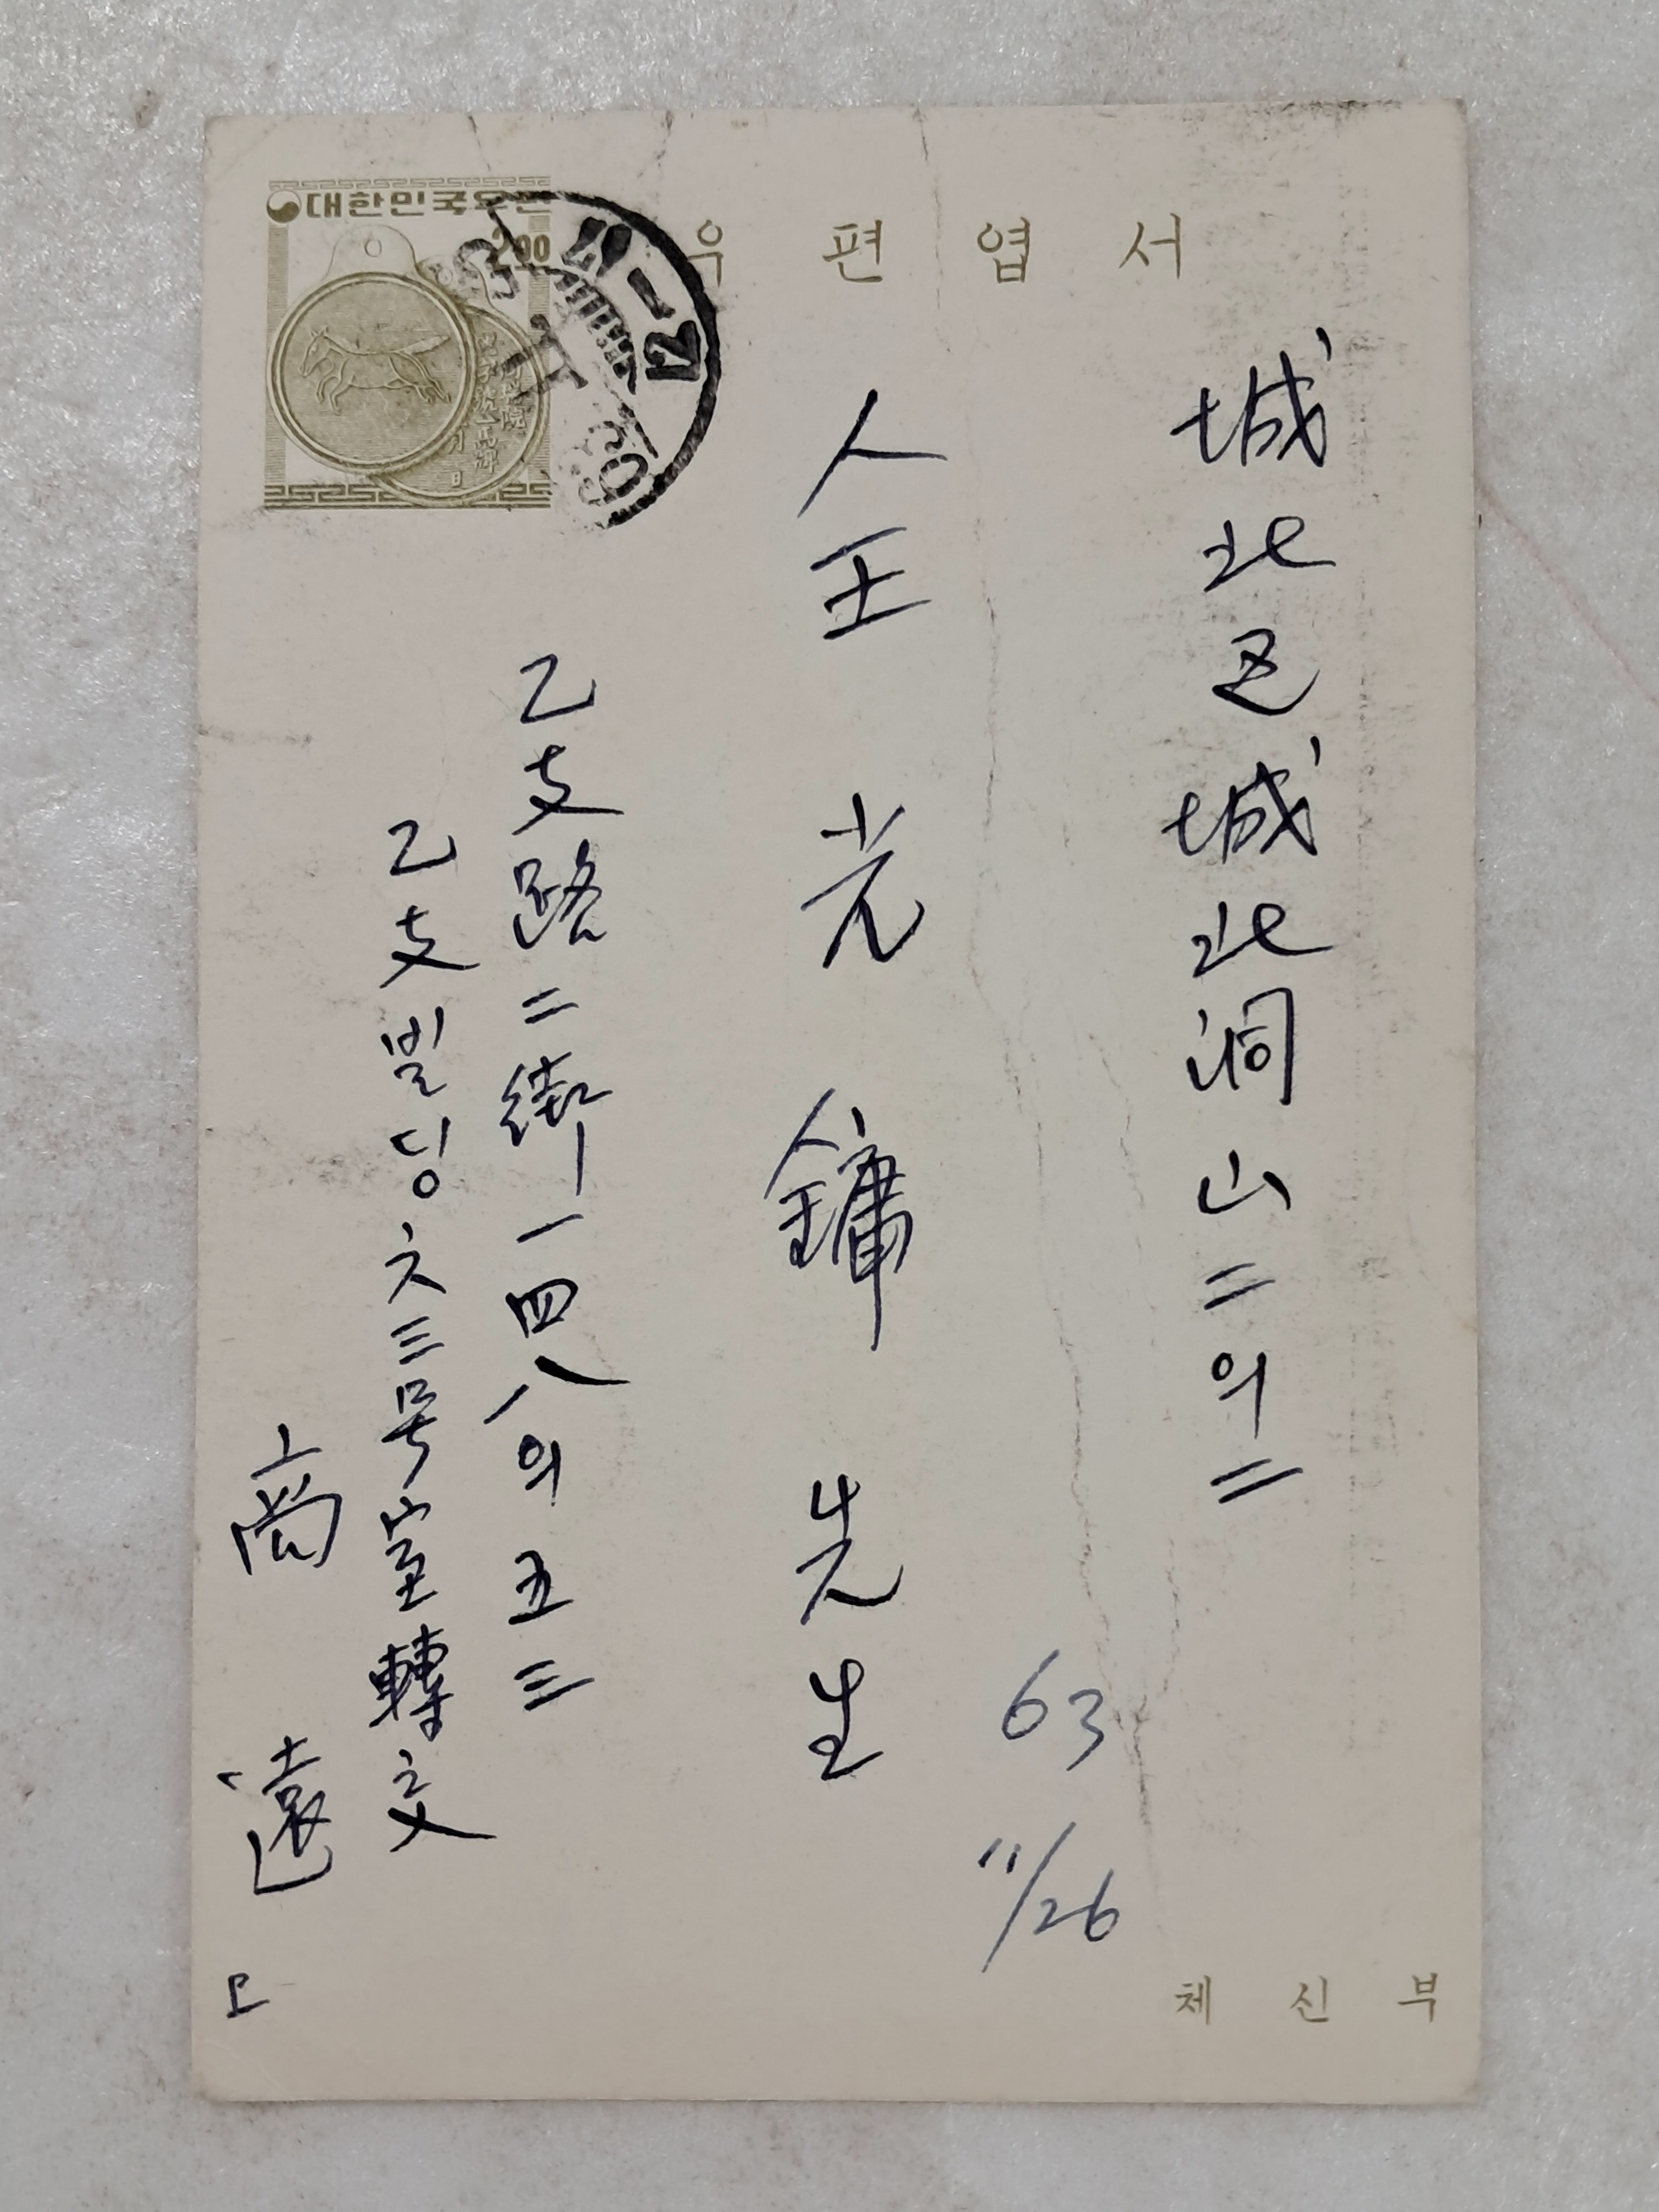 대한민국우편
2.00
우편엽서
城北区城北洞山二의二
全光鏞 先生
63
11/26
乙支路二街一四八의五三
乙支빌딩六三号室轉交
高遠
체신부